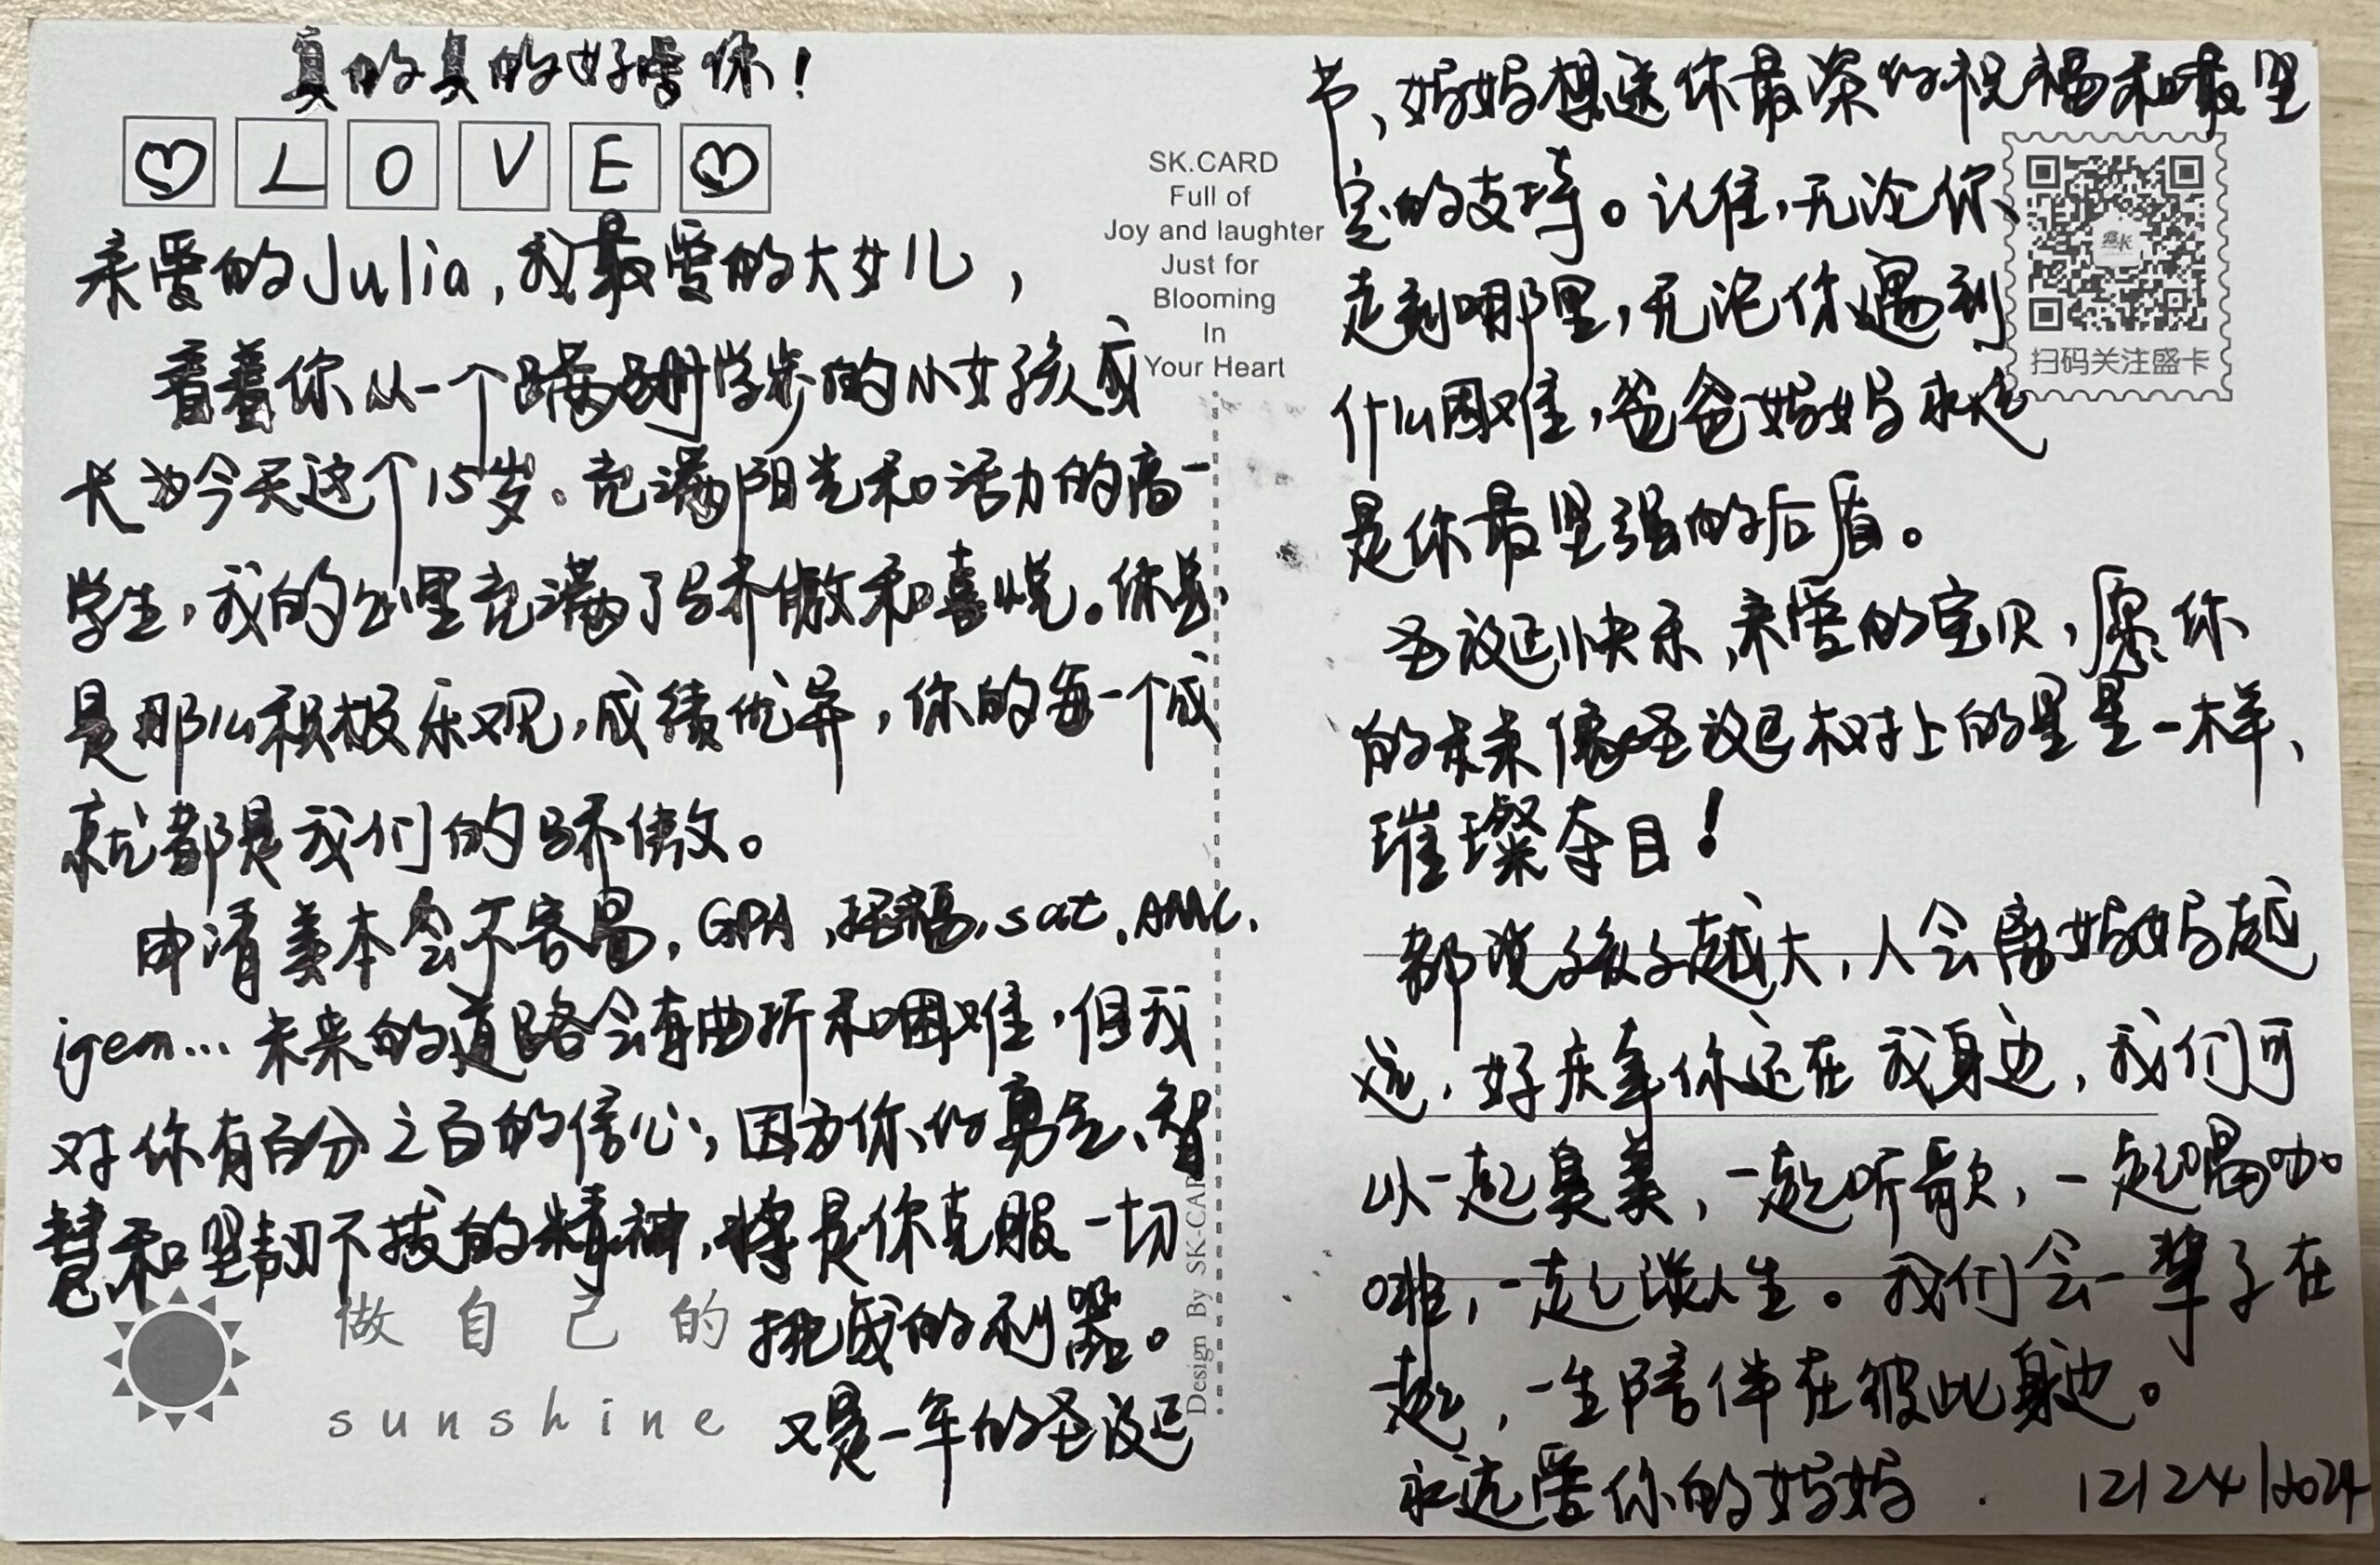 真的真的好喜你!
♡ L O V E ♡
亲爱的Julia,我最爱的大女儿,
看着你从一个蹒跚学步的小女孩成
长为今天这个15岁。充满阳光和活力的高一
学生,我的心里充满了骄傲和喜悦。你总
是那么积极乐观,成绩优异,你的每一个成
就都是我们的骄傲。
申请美本会不容易,GPA,托福,sat,AMC,
igem...未来的道路会有曲折和困难,但我
对你有百分之百的信心,因为你的勇气、智
慧和坚韧不拔的精神,将是你克服一切
挑战的利器。
又是一年的圣诞
做自己的
sunshine
SK.CARD
Full of
Joy and laughter
Just for
Blooming
In
Your Heart
Design By SK-CAR
节,妈妈想送你最深的祝福和最坚
定的支持。记住,无论你
走到哪里,无论你遇到
什么困难,爸爸妈妈永远
是你最坚强的后盾。
圣诞快乐,亲爱的宝贝,愿你
的未来像圣诞树上的星星一样,
璀璨夺目!
都说孩子越大,人会离妈妈越
远,好庆幸你还在我身边,我们可
以一起臭美,一起听歌,一起喝咖
啡,一起谈人生。我们会一辈子在
一起,一生陪伴在彼此身边。
永远爱你的妈妈. 12/24/2024
扫码关注盛卡